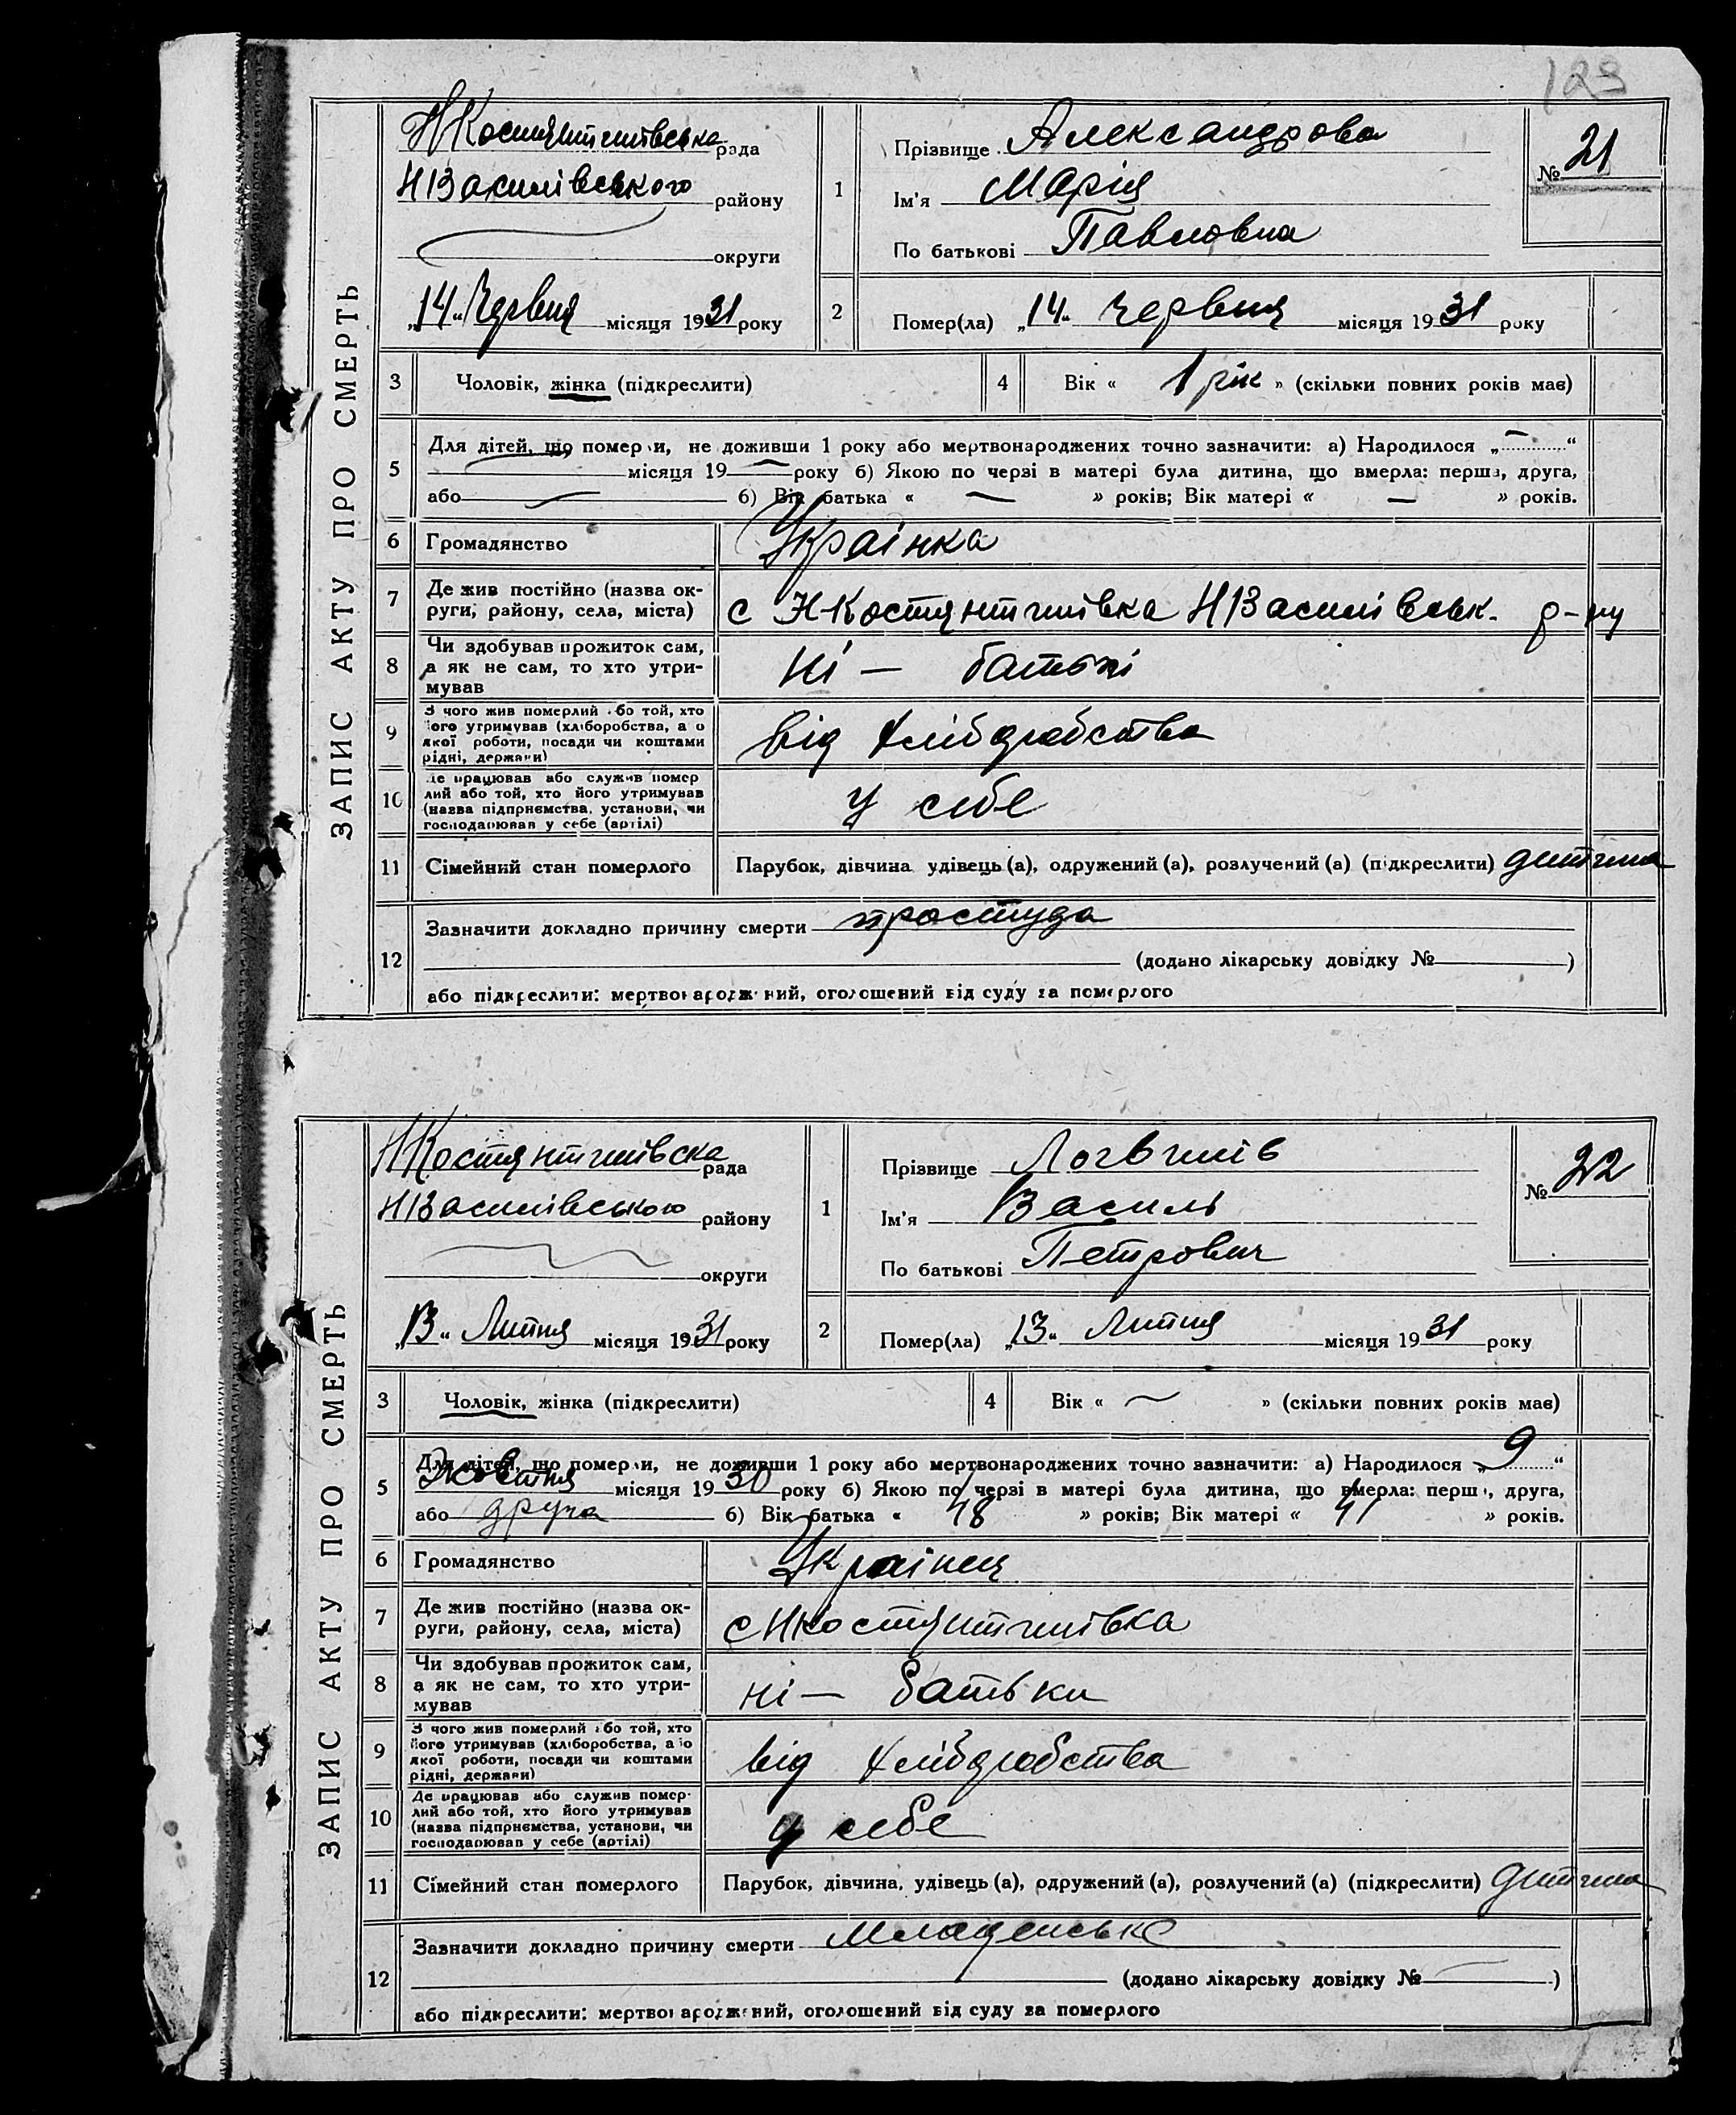 123
ЗАПИС АКТУ ПРО СМЕРТЬ
Н Костянтинівська рада
Н Василівського району
округи
„14“ Червня місяця 1931 року
1
Прізвище Александрова
Ім'я Марія
По батькові Павловна
№ 21
2
Помер(ла) „14“ Червня місяця 1931 року
3 Чоловік, жінка (підкреслити)
4 Вік « 1 рік » (скільки повних років має)
5 Для дітей, що померли, не доживши 1 року або мертвонароджених точно зазначити: а) Народилося „ — “
— місяця 19 — року б) Якою по черзі в матері була дитина, що вмерла: перша, друга,
або — б) Вік батька « — » років; Вік матері « — » років.
6 Громадянство Українка
7 Де жив постійно (назва ок-
руги, району, села, міста) с Н-Костянтинівка Н Василівськ. р-ну
8 Чи здобував прожиток сам,
а як не сам, то хто утри-
мував ні — батькі
9 З чого жив померлий або той, хто
його утримував (хліборобства, або
якої роботи, посади чи коштами
рідні, держави) від хлібдробства
10 Де працював або служив помер
лий або той, хто його утримував
(назва підприємства, установи, чи
господарював у себе (артілі) у себе
11 Сімейний стан померлого Парубок, дівчина удівець (а), одружений (а), розлучений (а) (підкреслити) дитина
12 Зазначити докладно причину смерти простуда
(додано лікарську довідку № )
або підкреслити: мертвонароджений, оголошений від суду за померлого
ЗАПИС АКТУ ПРО СМЕРТЬ
Н Костянтинівска рада
Н Василівського району
округи
„13“ Липня місяця 1931 року
1
Прізвище Логвинів
Ім'я Василь
По батькові Петрович
№ 22
2
Помер(ла) „13“ Липня місяця 1931 року
3 Чоловік, жінка (підкреслити)
4 Вік « — » (скільки повних років має)
5 Для дітей, що померли, не доживши 1 року або мертвонароджених точно зазначити: а) Народилося „ 9 “
Жовтня місяця 1930 року б) Якою по черзі в матері була дитина, що вмерла: перша, друга,
або друга б) Вік батька « 48 » років; Вік матері « 41 » років.
6 Громадянство Українця
7 Де жив постійно (назва ок-
руги, району, села, міста) с Нкостянтинівка
8 Чи здобував прожиток сам,
а як не сам, то хто утри-
мував ні — батьки
9 З чого жив померлий або той, хто
його утримував (хліборобства, або
якої роботи, посади чи коштами
рідні, держави) від хлібдробства
10 Де працював або служив помер-
лий або той, хто його утримував
(назва підприємства, установи, чи
господарював у себе (артілі) у себе
11 Сімейний стан померлого Парубок, дівчина, удівець (а), одружений (а), розлучений (а) (підкреслити) дитина
12 Зазначити докладно причину смерти Младенське
(додано лікарську довідку № )
або підкреслити: мертвонароджений, оголошений від суду за померлого